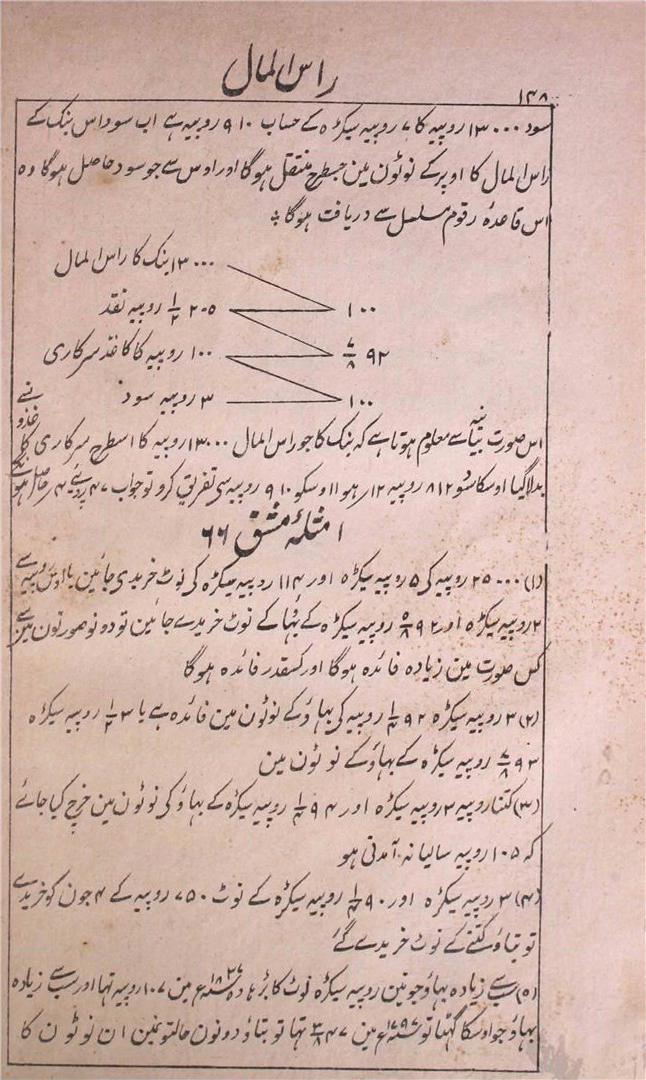 راس المال
۱۴۸
سود ۱۳۰۰۰ روپیہ کا ۷ روپیہ سیکڑہ کے حساب ۹۱۰ روپیہ ہے اب سود اس بنک کے
راس المال کا اوپر کے نوٹون مین جسطرح منتقل ہوگا اور اوس سے جو سود حاصل ہوگا وہ
اس قاعدۂ رقوم مسلسل سے دریافت ہوگا
۱۳۰۰۰ بنک کا راس المال
۱۰۰ ۲۰۵ ۱/۲ روپیہ نقد
۹۲ ۷/۸ ۱۰۰ روپیہ کا کاغذ سرکاری
۱۰۰ ۳ روپیہ سود
اس صورت سے معلوم ہوتا ہے کہ بنک کا جو راس المال ۱۳۰۰۰ روپیہ کا اسطرح سرکاری کاغذو نے
بدلا گیا اوسکا سود ۸۱۲ روپیہ ۱۲ ہوا اوسکو ۹۱۰ روپیہ سی تفریق کرو تو جواب ۹۷ روپیہ ۴ حاصل ہو
امثلۂ مشق ۶۶
(۱) ۲۵۰۰۰ روپیہ کی ۵ روپیہ سیکڑہ اور ۱۱۴ روپیہ سیکڑہ کی نوٹ خریدی جائین یا اوس روپیہ سے
۲ روپیہ سیکڑہ اور ۹۲ ۵/۸ روپیہ سیکڑہ کے بہاؤ کے نوٹ خریدے جائین تو دونو صورتون مین سے
کس صورت مین زیادہ فائدہ ہوگا اور کسقدر فائدہ ہوگا
(۲) ۳ روپیہ سیکڑہ ۹۲ ۱/۴ روپیہ کی بہاؤ کے نوٹون مین فائدہ ہے یا ۳ ۱/۲ روپیہ سیکڑہ
۹۳ ۷/۸ روپیہ سیکڑہ کے بہاؤ کے نوٹون مین
(۳) کتنا روپیہ ۲ روپیہ سیکڑہ اور ۹۴ ۱/۴ روپیہ سیکڑہ کے بہاؤ کی نوٹون مین خرچ کیا جائے
کہ ۱۰۵ روپیہ سالیانہ آمدنی ہو
(۴) ۳ روپیہ سیکڑہ اور ۹۰ ۱/۴ روپیہ سیکڑہ کے نوٹ ۷۵۰ روپیہ کے ۴ جون کو خریدے
تو بتاؤ کتنے کے نوٹ خریدے گئے
(۵) سب سے زیادہ بہاؤ جو تین روپیہ سیکڑہ نوٹ کا بڑہا وہ ء مین ۱۰۷ روپیہ تہا اور سب سے زیادہ
بہاؤ جو اوسکا گہٹا تو ۱۷۹۷ء مین ۴۷ ۳/۸ تہا تو بتاؤ دونون حالتون مین ان نوٹون کا